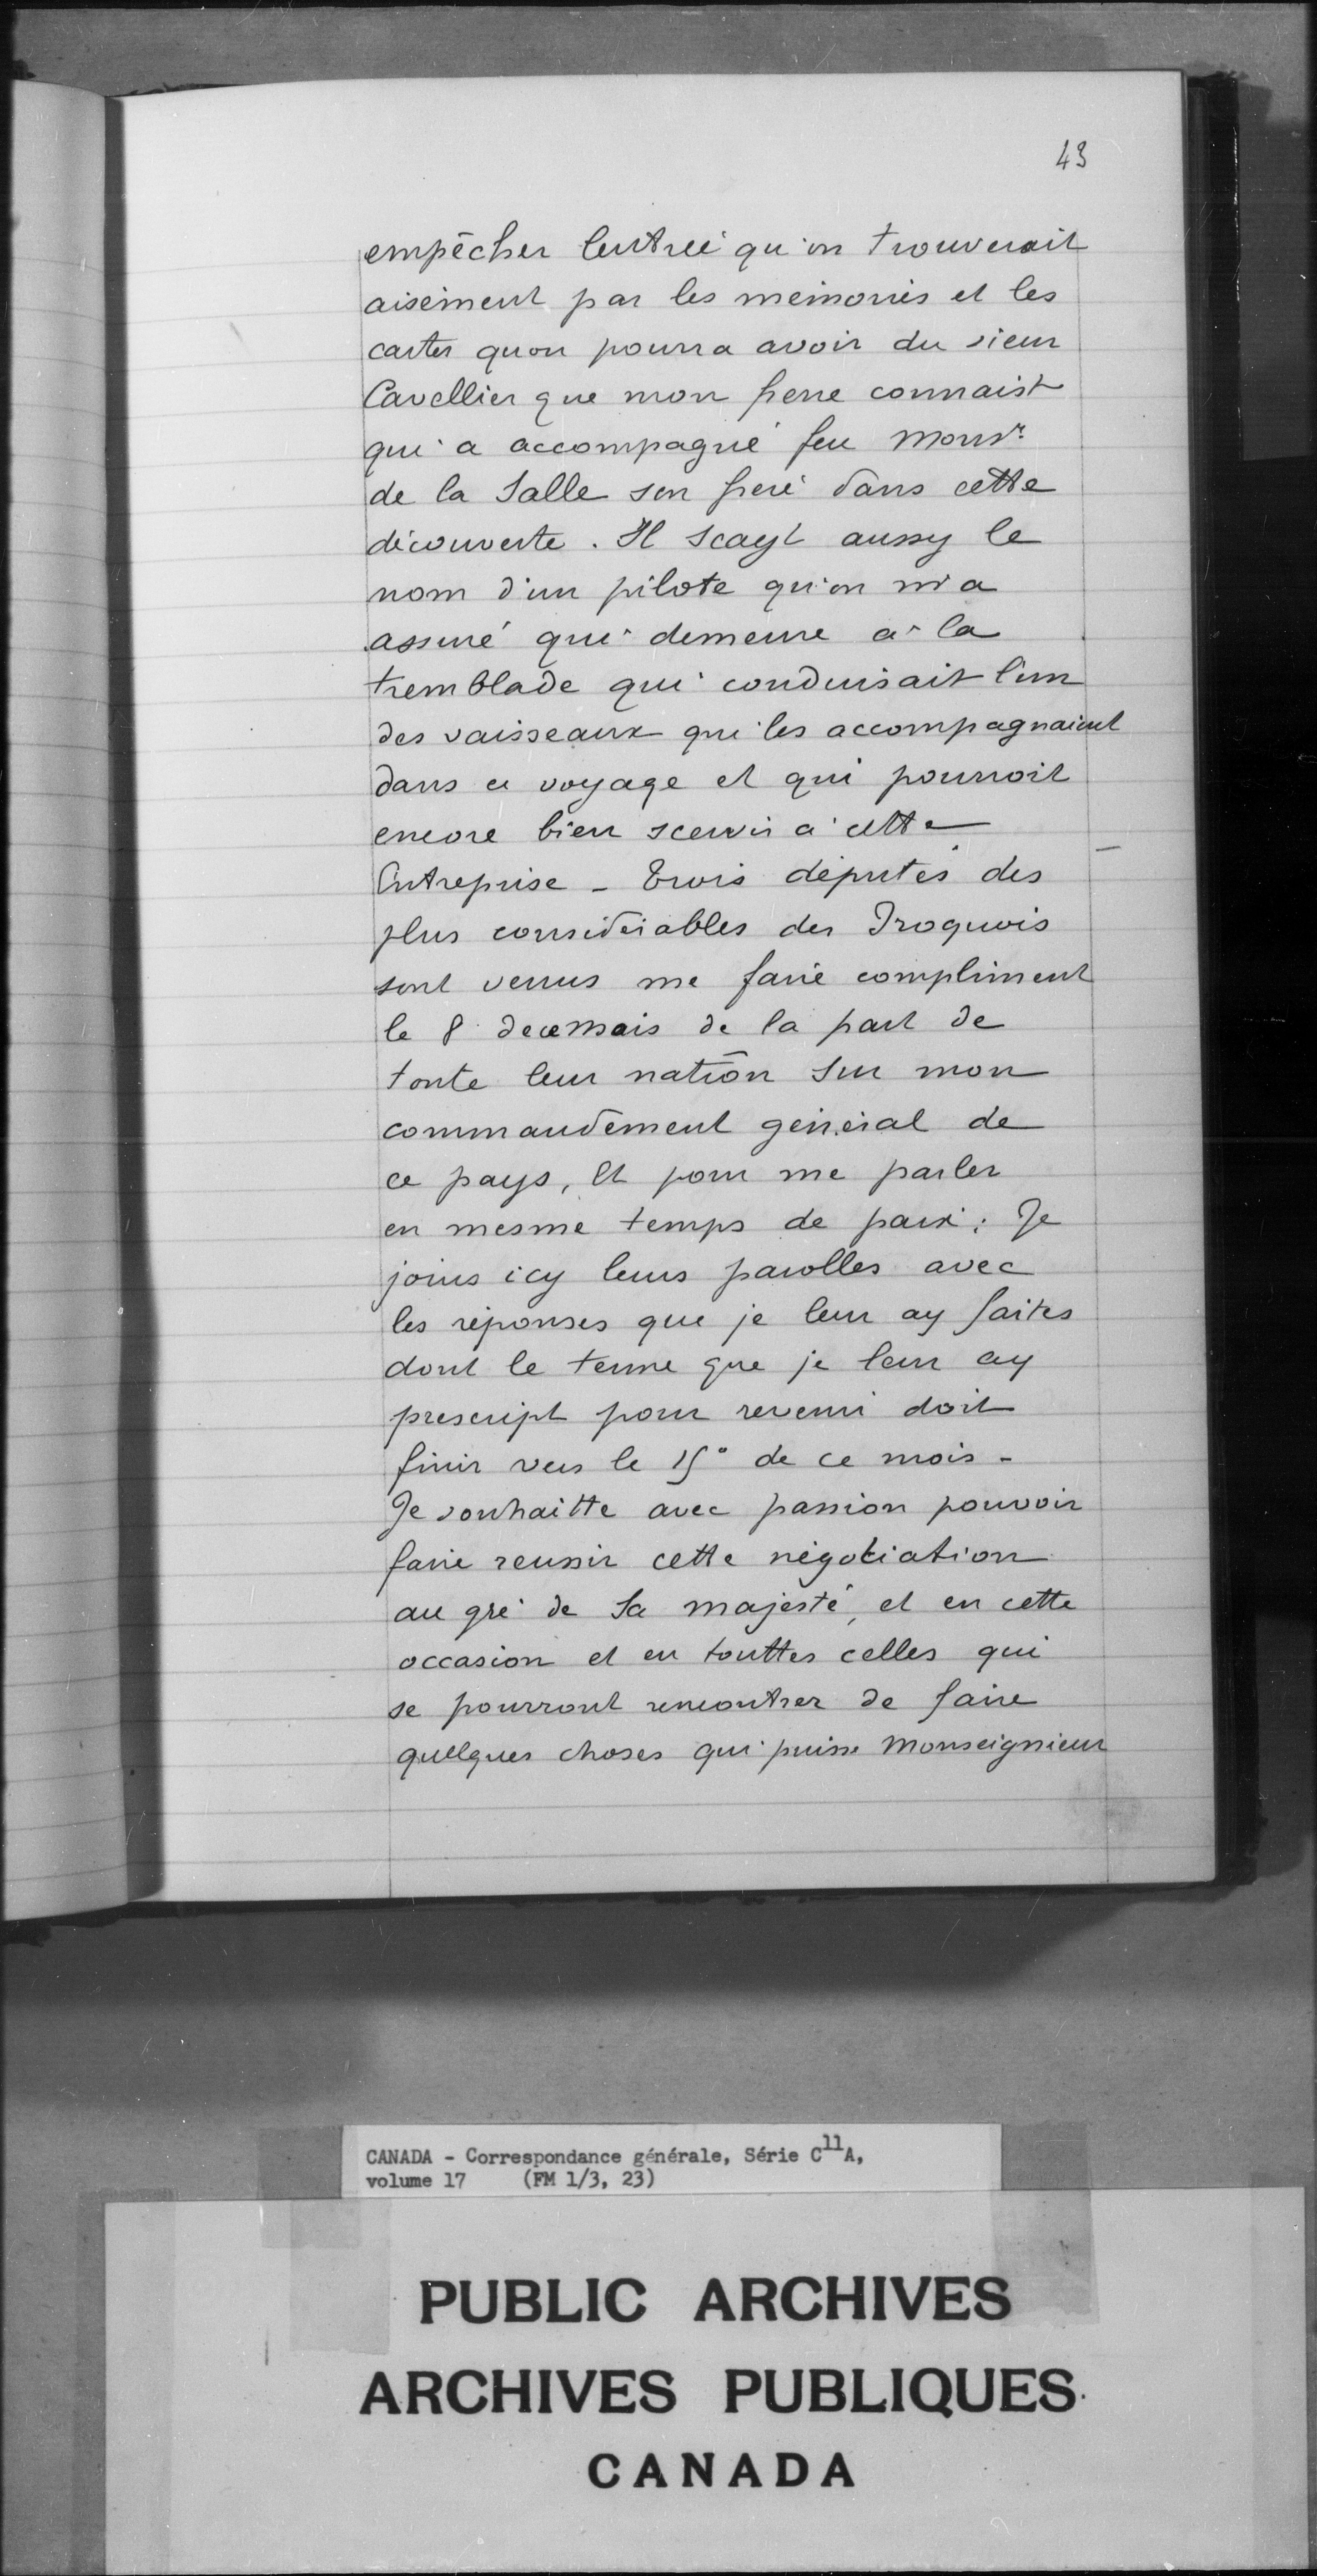 43
empêcher lentreé qu'on trouverait
aiseiment par les meimories et les
cartes quon pourra avoir du sieur
Cavellier que mon frere connaist
qui a accompagné feu Monsr
de la Salle son freré dans cette
découverte. Il scayt aussy le
nom d'un pilote qu'on m'a
assuré qui demeure a la
tremblade qui conduisait l'un
des vaisseaux qui les accompagnaient
dans ce voyage et qui pourroit
encore bien scervir a cette
Entreprise - Trois députés des
plus considérables des Iroquois
sont venus me faire compliment
le 8 decemois de la part de
toute leur nation sur mon
commandement géneral de
ce pays, Et pour me parler
en mesme temps de paix; Je
joins icy leurs parolles avec
les réponses que je leur ay faites
dont le terme que je leur ay
prescript pour revenir doit
finir vers le 15° de ce mois -
Je souhaitte avec passion pouvoir
faire reussir cette négotiation
au gré de Sa majesté, et en cette
occasion et en touttes celles qui
se pourront rencontrer de faire
quelques choses qui puisse Monseignieur
CANADA - Correspondance générale, Série C11A,
volume 17 (FM 1/3, 23)
PUBLIC ARCHIVES
ARCHIVES PUBLIQUES
CANADA